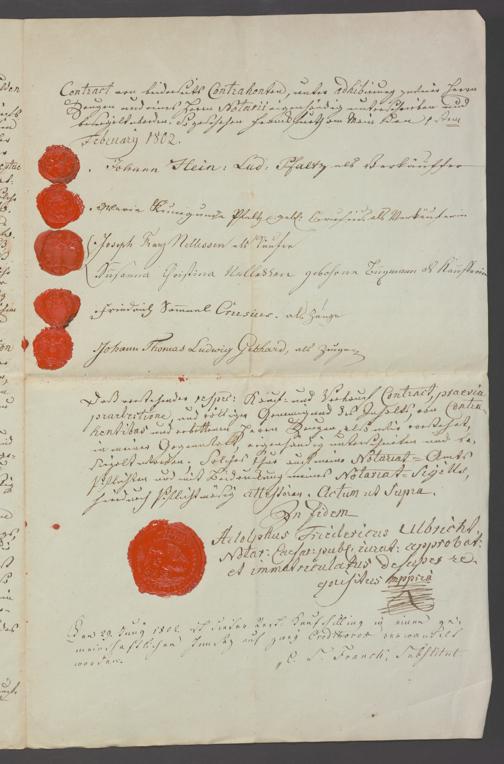 Contract von beiderseits Contrahenten, unter adhibirung zweier Herrn
Zeugen und eines Herrn Notarii eigenhändig unterschrieben und
besiegelt worden. So geschehen Frankfurt am Main den
February 1802.
Johann Hein: Lud: Pfaltz als Verkäuffer
Maria Kunigunda Pfaltz gebh. Crusius als Verkäuferin
Joseph Franz Nellessen als Käufer
Susanna Christina Nellessen gebohrne Zugmann als Käufferin
Friedrich Samuel Crusius. als Zeuge
Johann Thomas Ludwig Gebhard, als Zeuge
Daß vorstehender resp: Kauf- und Verkauf Contract, praevia
praelectione, und völliger Genemigung des Inhalts, von Contra-
hentibus und erbettenen Herrn Zeugen, also wie vorstehet,
in meiner Gegenwart eigenhändig unterschrieben und be-
siegelt worden. Solches thue auf meine Notariat-Amts
Pflichten und mit Beidruckung meines Notariat-Sigills,
hierdurch pflichtmäsig attestiren. Actum ut Supra.
In fidem
Adolphus Fridericus Ulbricht
Notar: Caesar: publ: jurat: approbat:
et immatriculatus desuper re-
quisitus mppria
Den 29 Juny 1802 ist dieser Kaufschilling in einen ge-
meinschaftlichen Insatz auf
worden.
Franck, Substitut